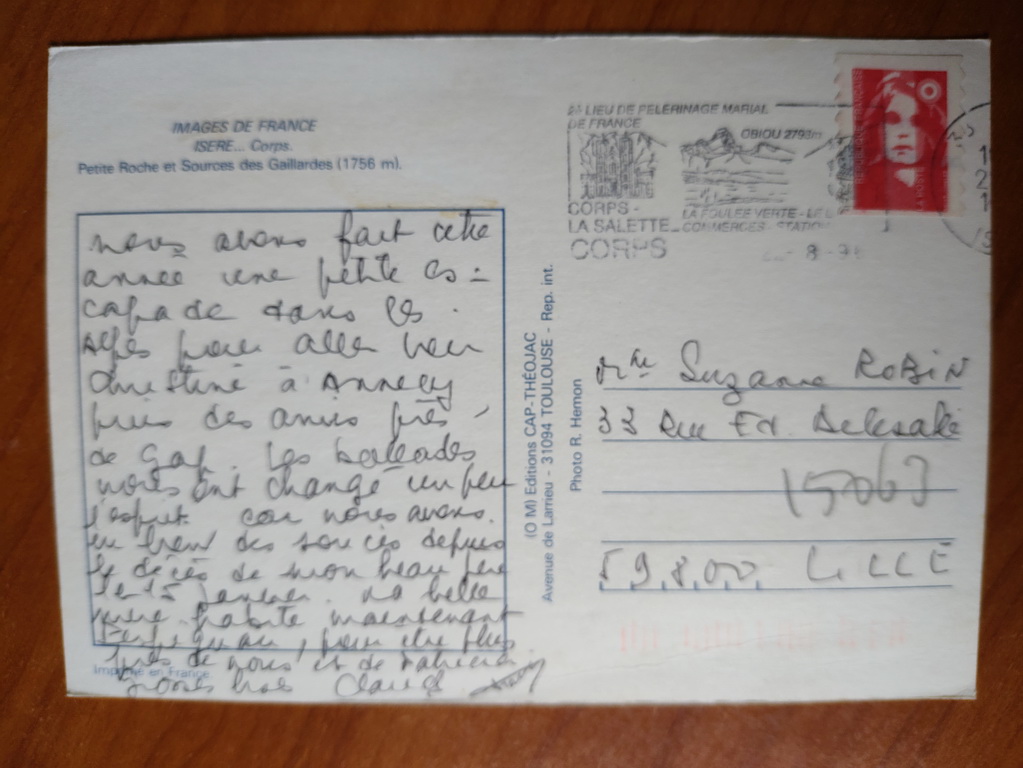 IMAGES DE FRANCE
ISERE... Corps.
Petite Roche et Sources des Gaillardes (1756 m).
nous avons fait cette
année une petite es=
capade dans les
Alpes pour aller voir
Christine à Annecy
puis des amis près
de Gap. Les balades
nous ont changé un peu
l'esprit car nous avons
eu bien des soucis depuis
le décès de mon beau père
le 15 janvier. Ma belle
mère habite maintenant
pour être plus
près de nous et de
Gros bises Claude
Imprimé en France
(O M) Editions CAP-THÉOJAC
Avenue de Larrieu - 31094 TOULOUSE - Rep. int.
Photo R. Hemon
LIEU DE PELERINAGE MARIAL
DE FRANCE
OBIOU 2793m
CORPS -
LA SALETTE
LA FOULEE VERTE - LE
COMMERCES - STATION
CORPS
8-9
Mme Suzanne ROBIN
33 Rue Ed. Delesalle
15063
59800 LILLE